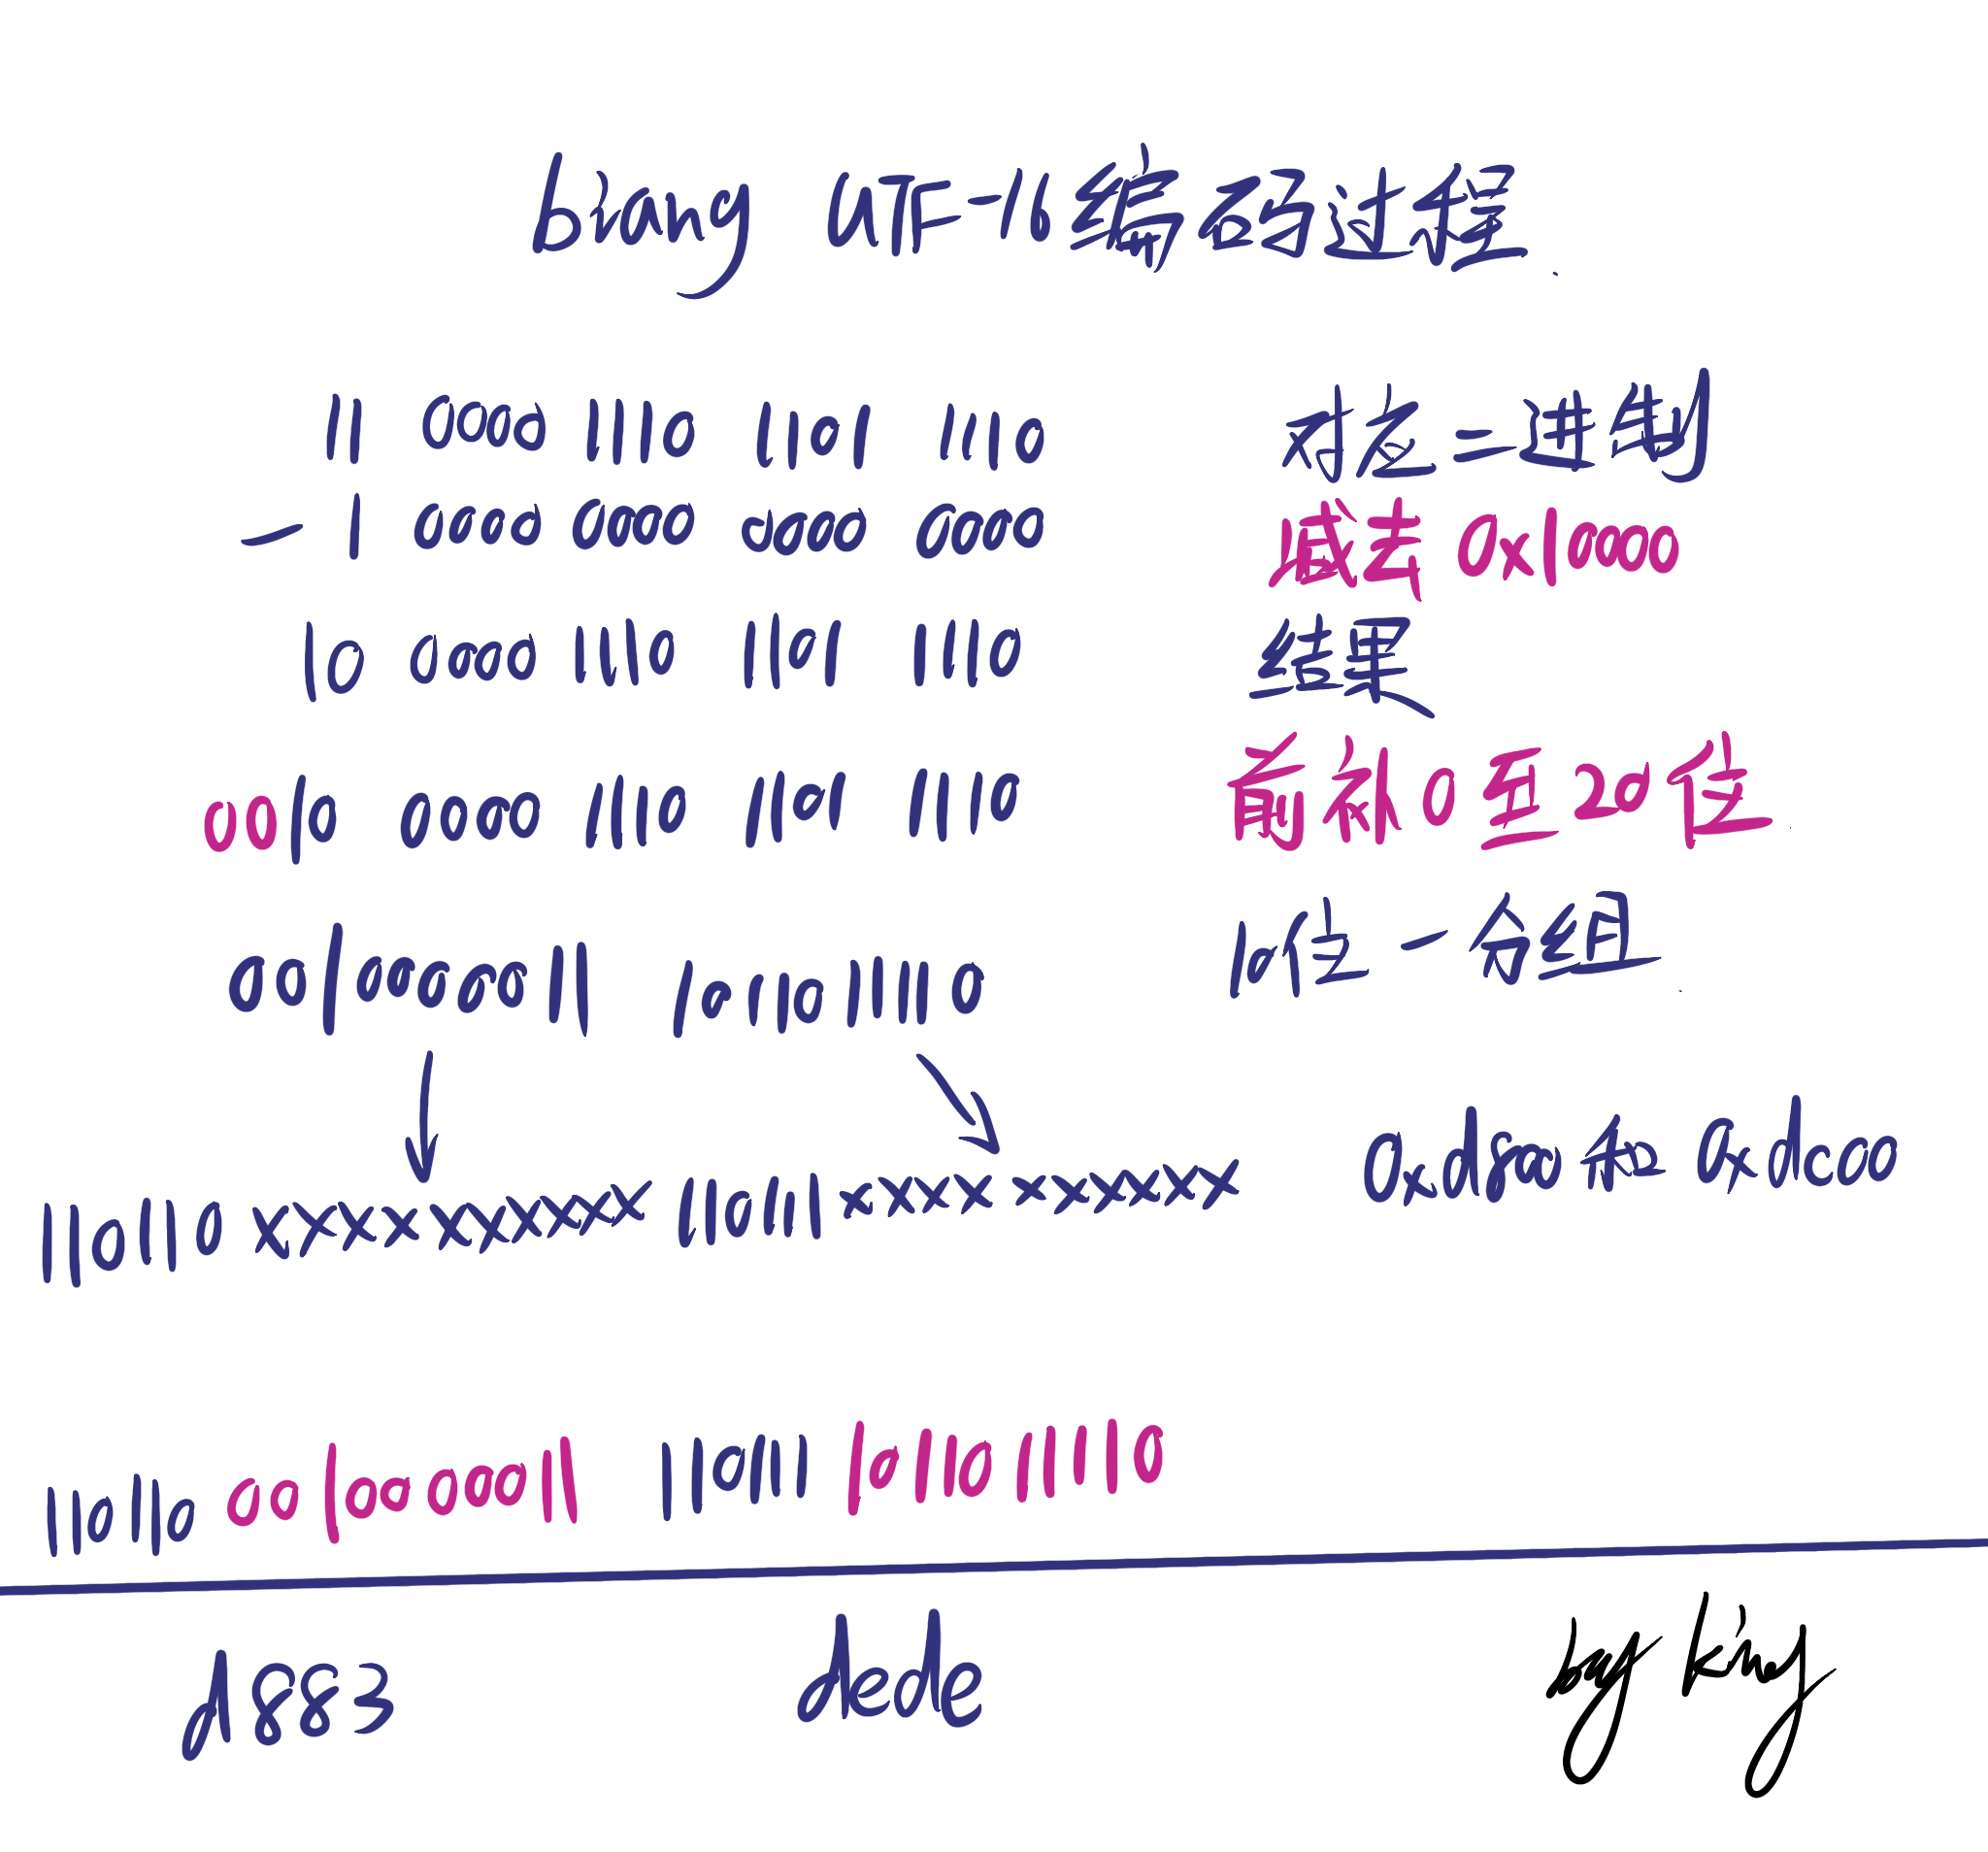 biang UTF-16编码过程.
11 0000 1110 1101 1110 对应二进制
- 1 0000 0000 0000 0000 减去 0x10000
10 0000 1110 1101 1110 结果
0010 0000 1110 1101 1110 前补0至20位.
0010000011 1011011110 10位一分组.
110110 xxxxxxxxxx 110111 xxxxxxxxxx 0xd800 和 0xdc00
110110 0010000011 110111 1011011110
d883 dede by king